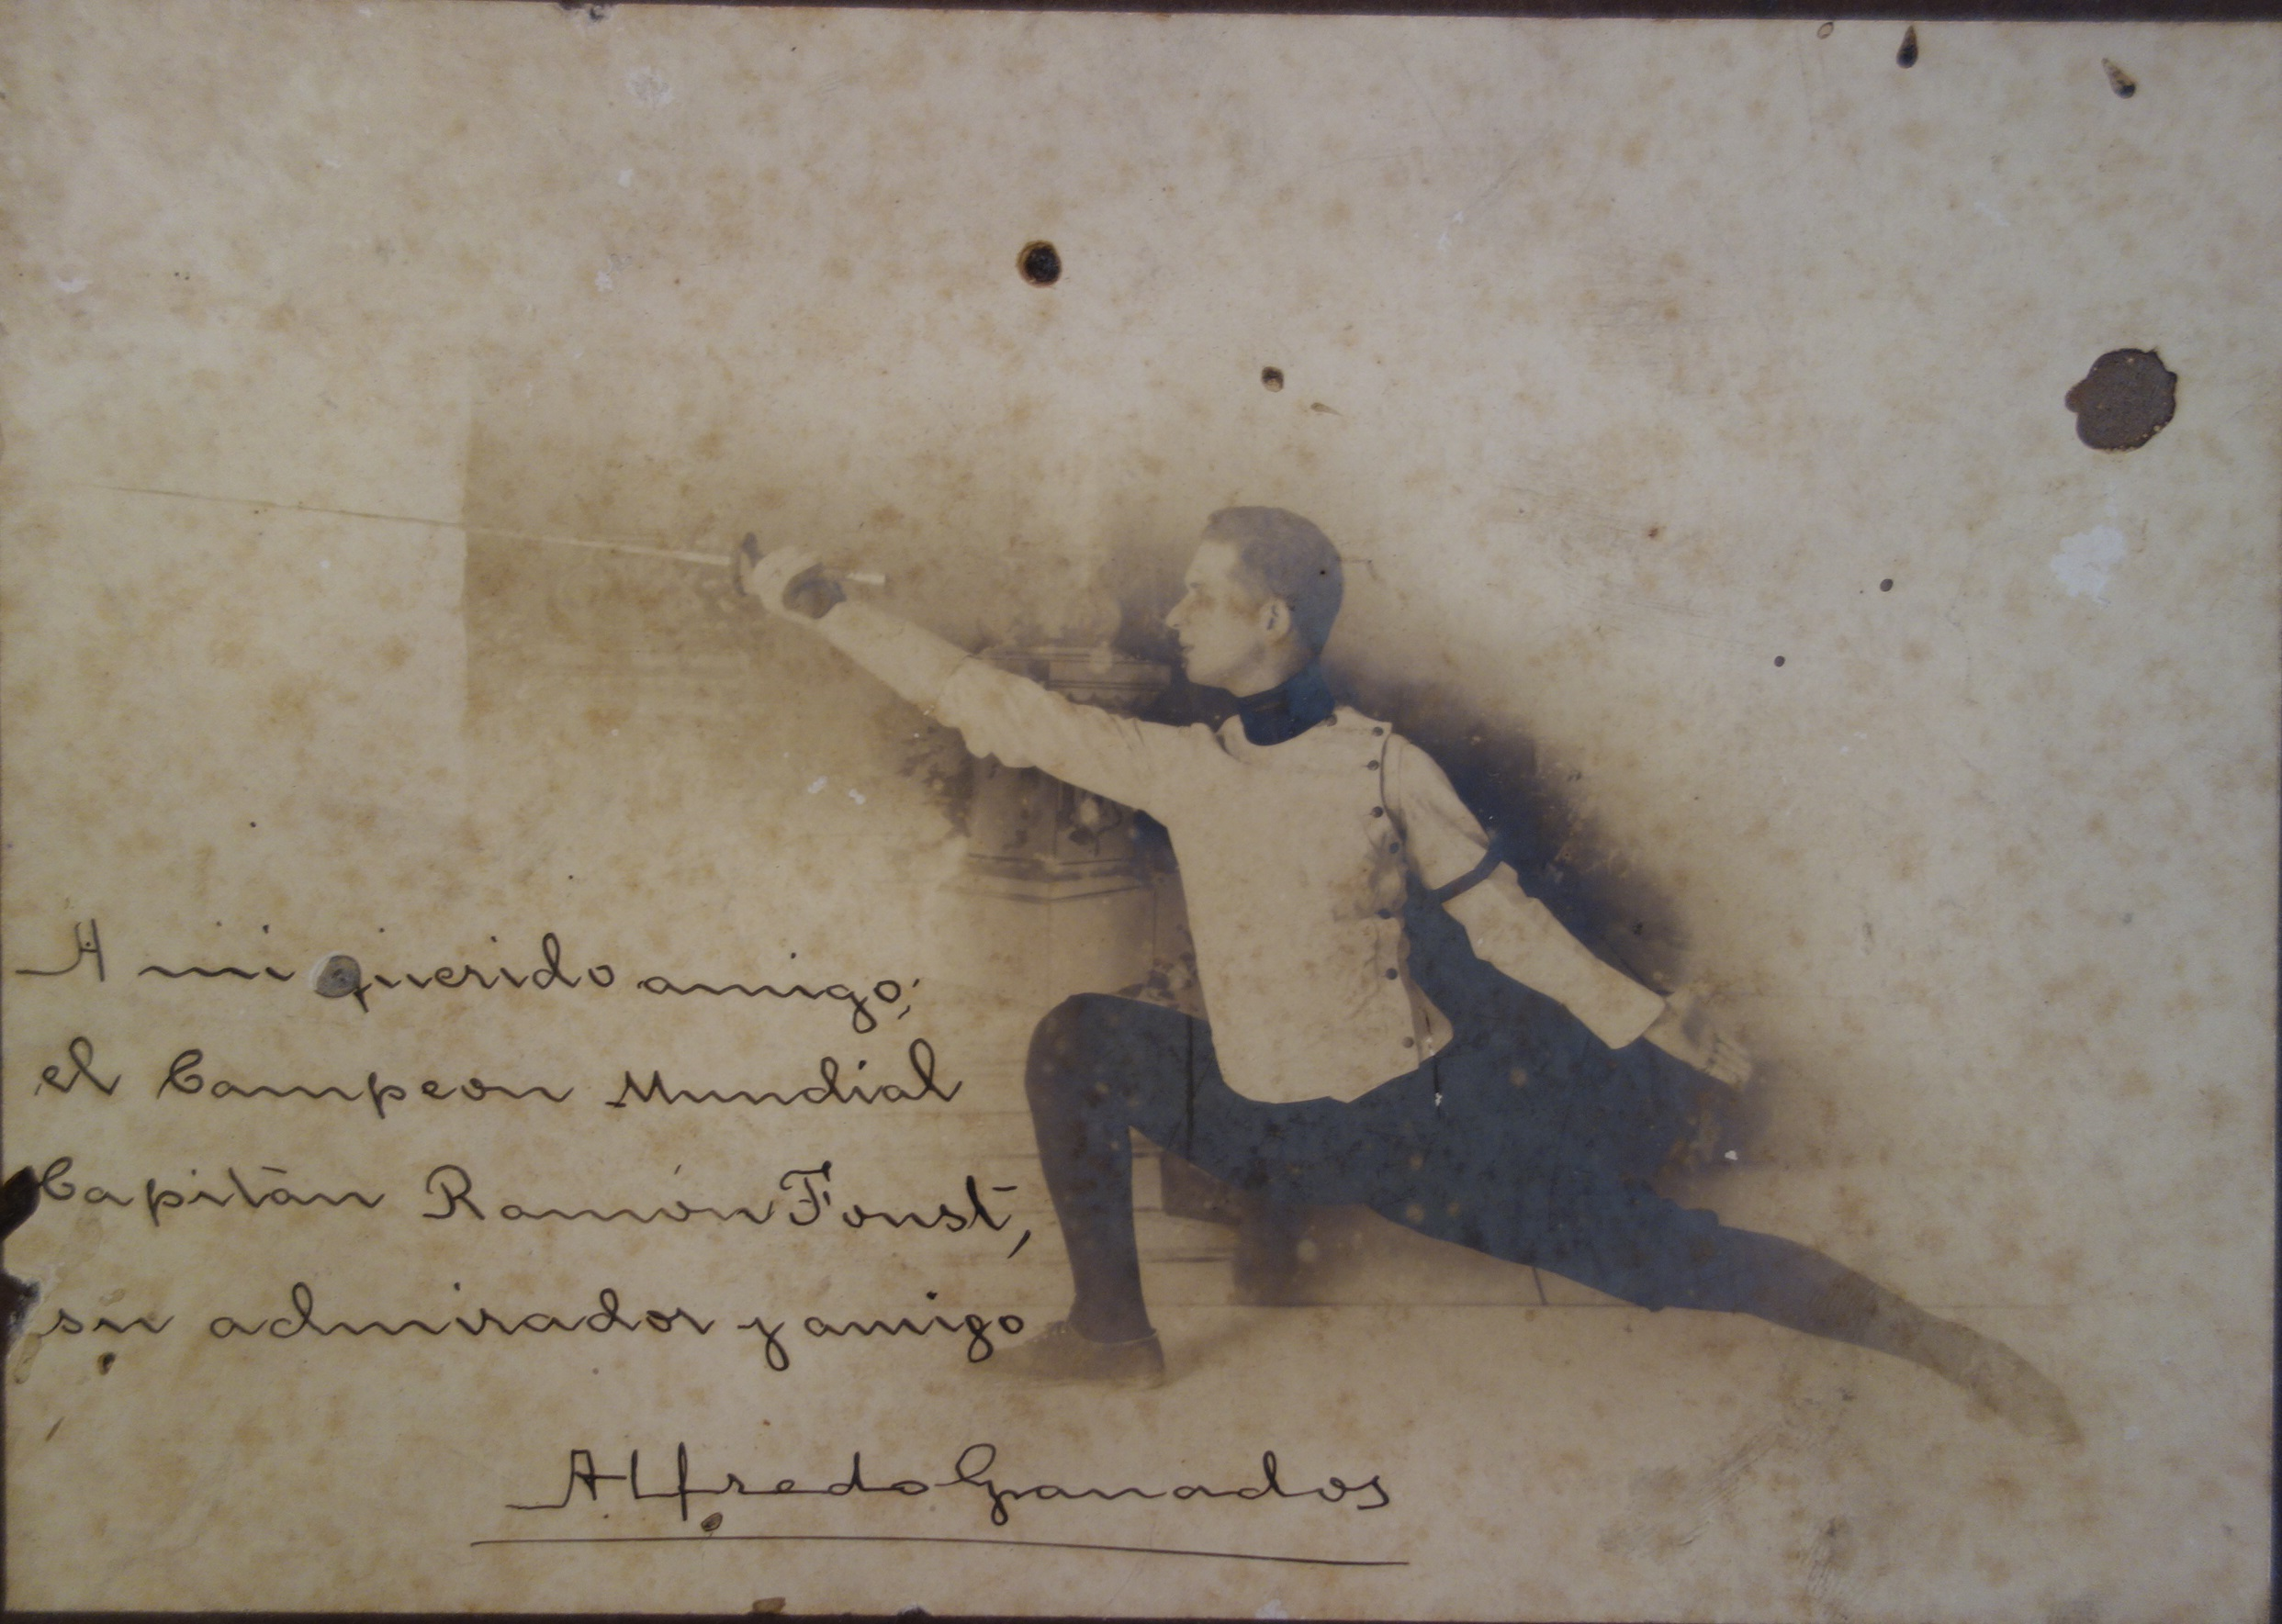 A mi querido amigo;
el Campeon Mundial
Capitán Ramón Fonst,
su admirador y amigo
Alfredo Granados